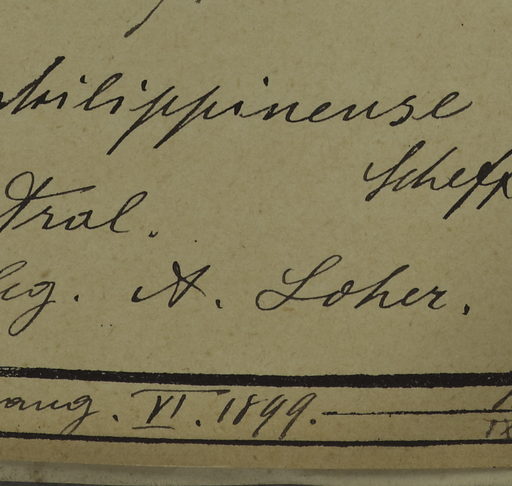 philippinense
Scheff
tral.
leg. A. Loher.
ang. VI. 1899.
IX